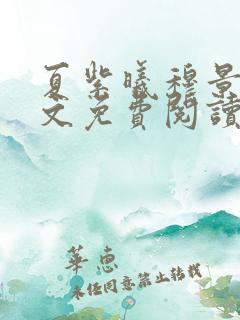 夏紫曦穆景
文免費閱讀
華惠
未經同意禁止轉載